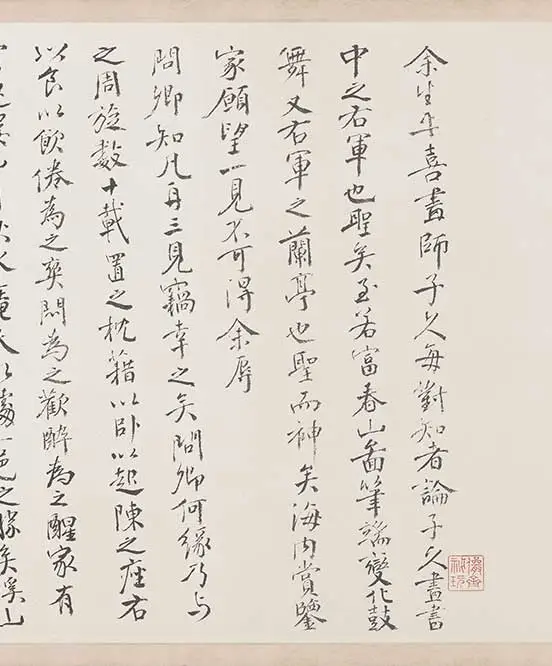 余生平喜畫師子久每對知者論子久畫書
中之右軍也聖矣至若富春山圖筆端變化鼓
舞又右軍之蘭亭也聖而神矣海內賞鑒
家願望一見不可得余辱
問卿知凡再三見竊幸之矣問卿何緣乃與
之周旋數十載置之枕籍以臥以起陳之座右
以食以飲倦為之爽悶為之歡醉為之醒家有
水菴夫以一邑之勝矣溪山